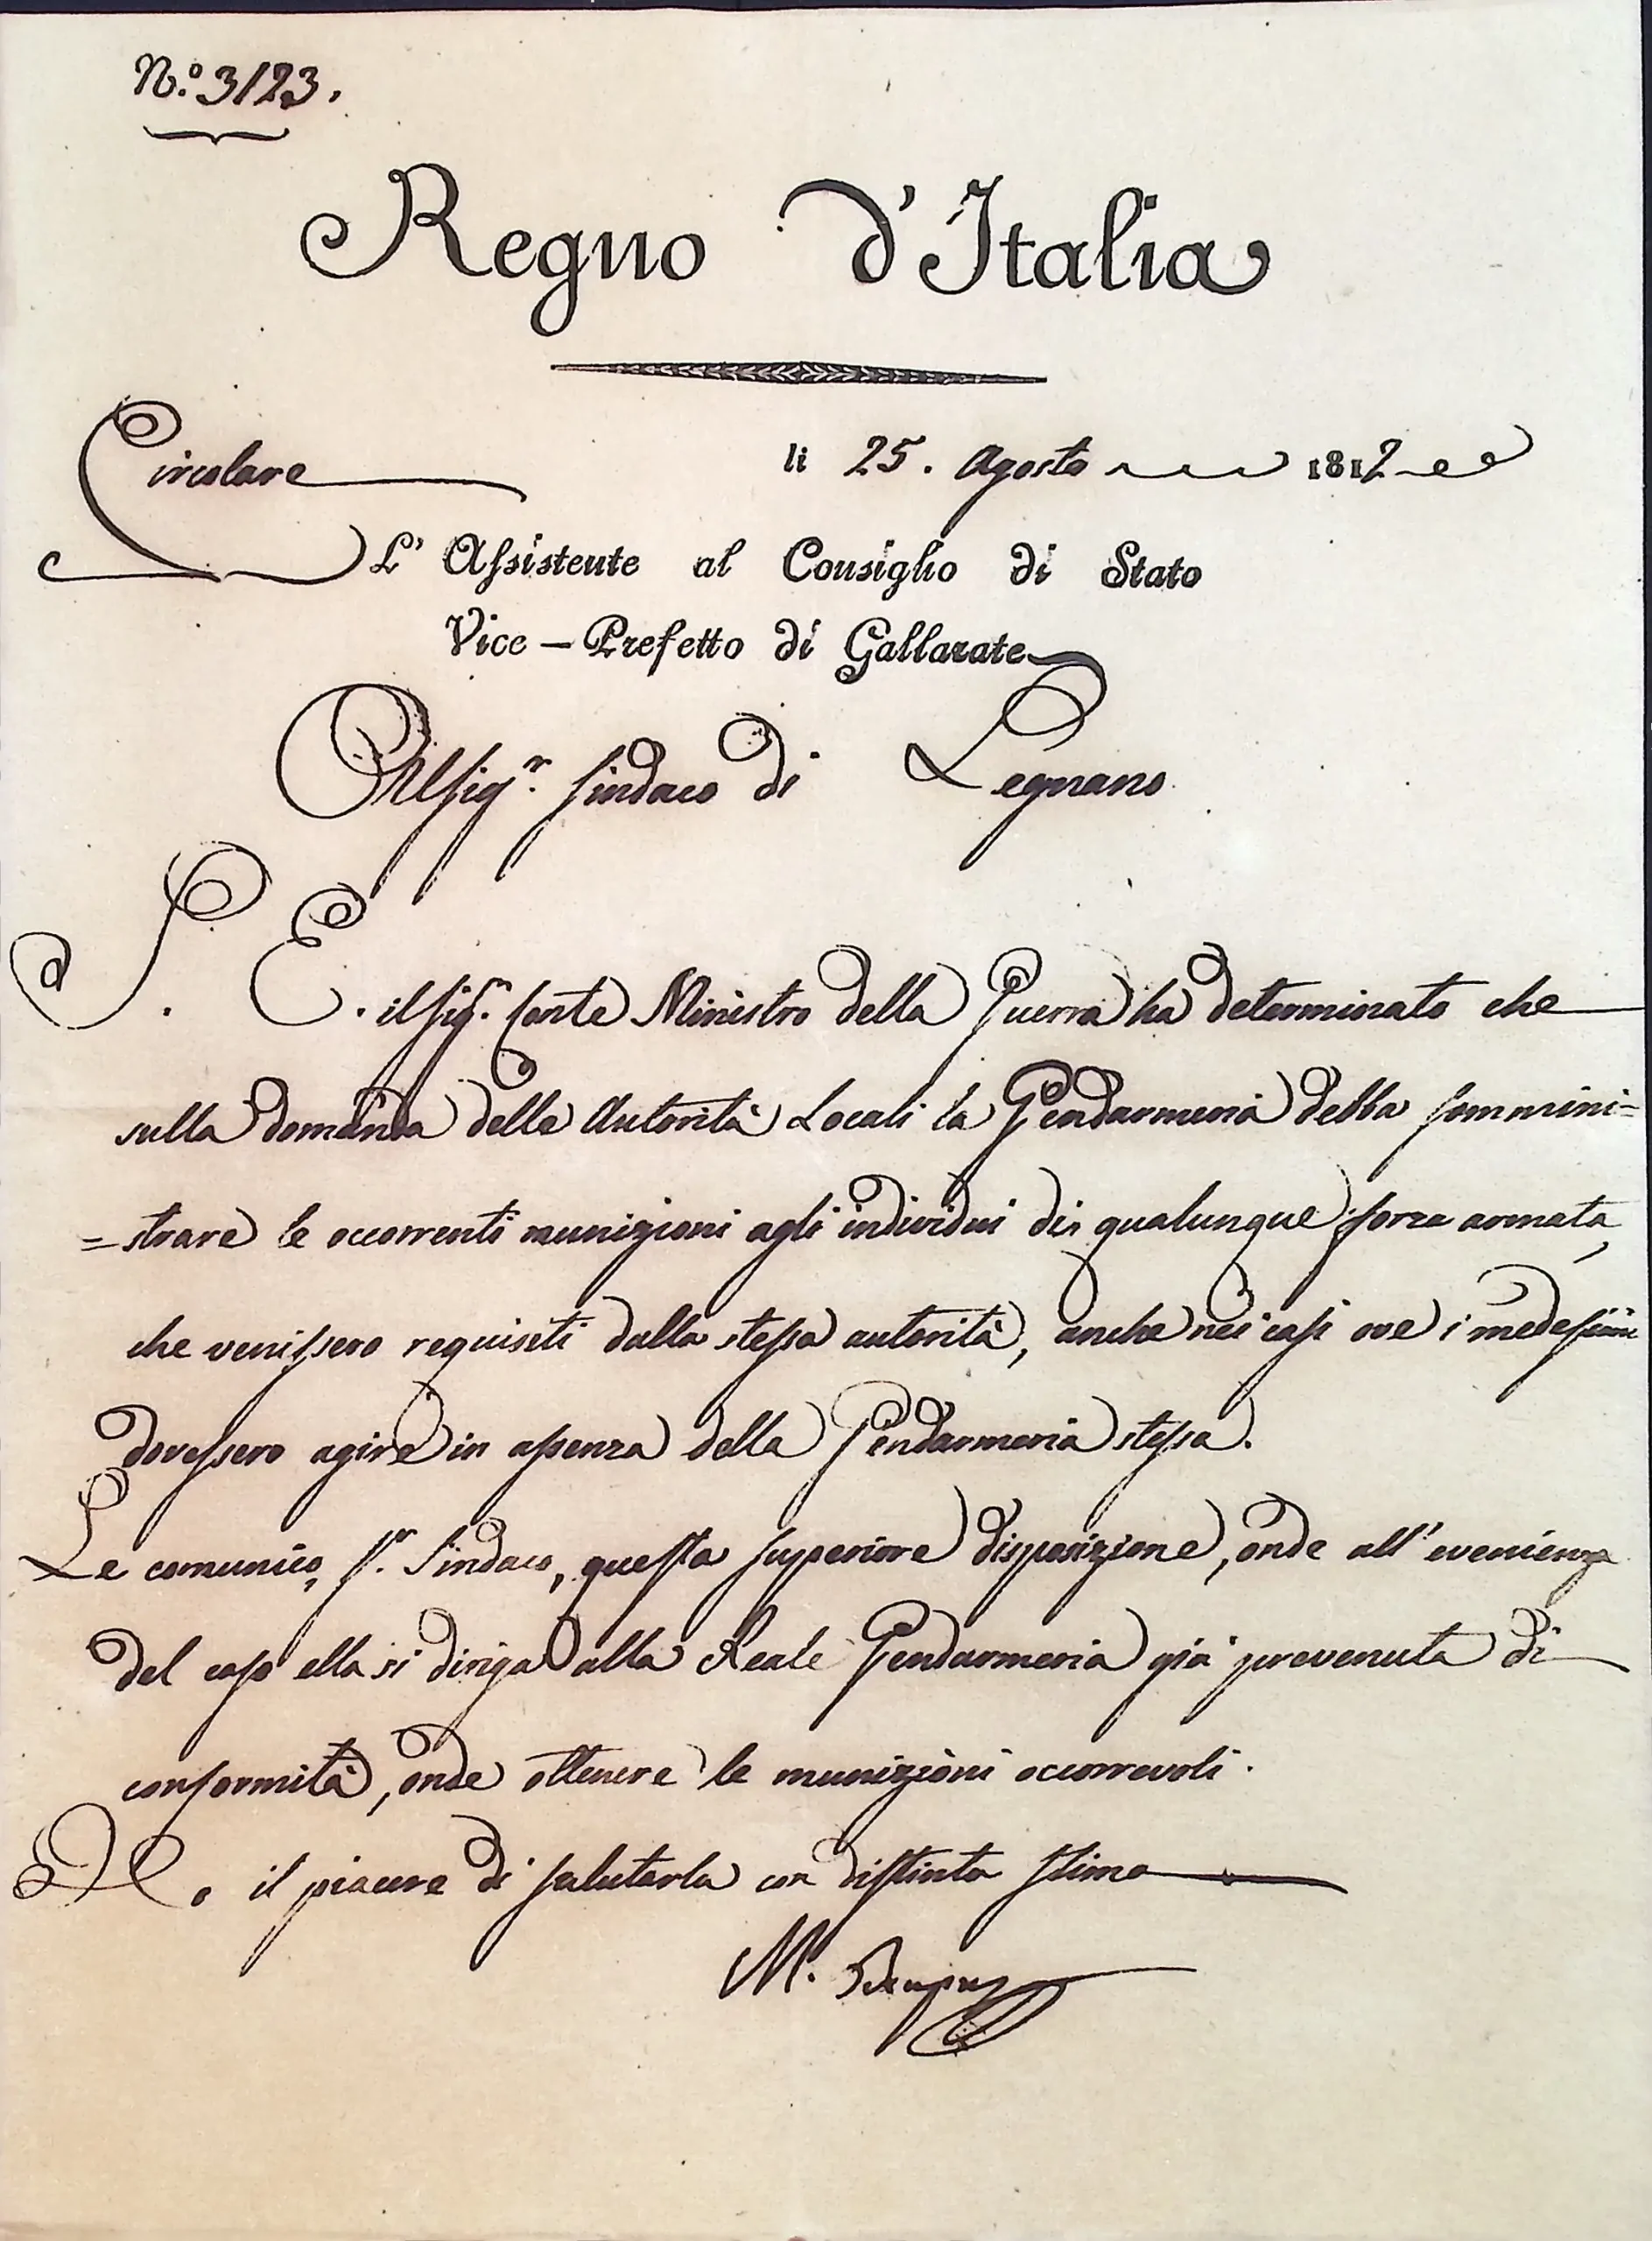 N.º 3123.
Regno d'Italia
Circolare li 25. Agosto 1812
L' Assistente al Consiglio di Stato
Vice - Prefetto di Gallarate
Al Sig.r Sindaco di Legnano
S. E. il Sig.r Conte Ministro della Guerra ha determinato che
sulla domanda delle Autorità Locali la Gendarmeria debba sommini=
=strare le occorrenti munizioni agli individui di qualunque forza armata,
che venissero requisiti dalla stessa autorità, anche nei casi ove i medesimi
dovessero agire in assenza della Gendarmeria stessa.
Le comunico, S.r Sindaco, questa superiore disposizione, onde all'evenienza
del caso ella si diriga alla Reale Gendarmeria già prevenuta di
conformità, onde ottenere le munizioni occorrevoli.
Ho il piacere di salutarla con distinta stima
M.